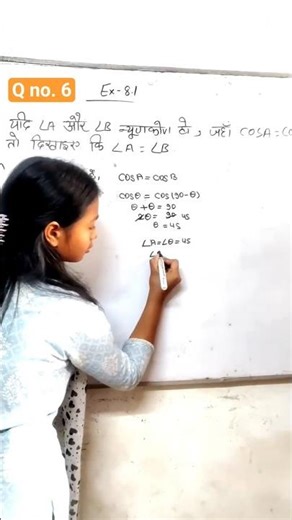 Q no. 6
Ex-8.1
यदि ∠A और ∠B न्यूनकोण हो, जहाँ COSA=CO
तो दिखाइए कि ∠A = ∠B
COSA=COSB
COSθ = COS(90-θ)
θ+θ = 90
2θ = 90 45
θ = 45
∠A=∠θ=45